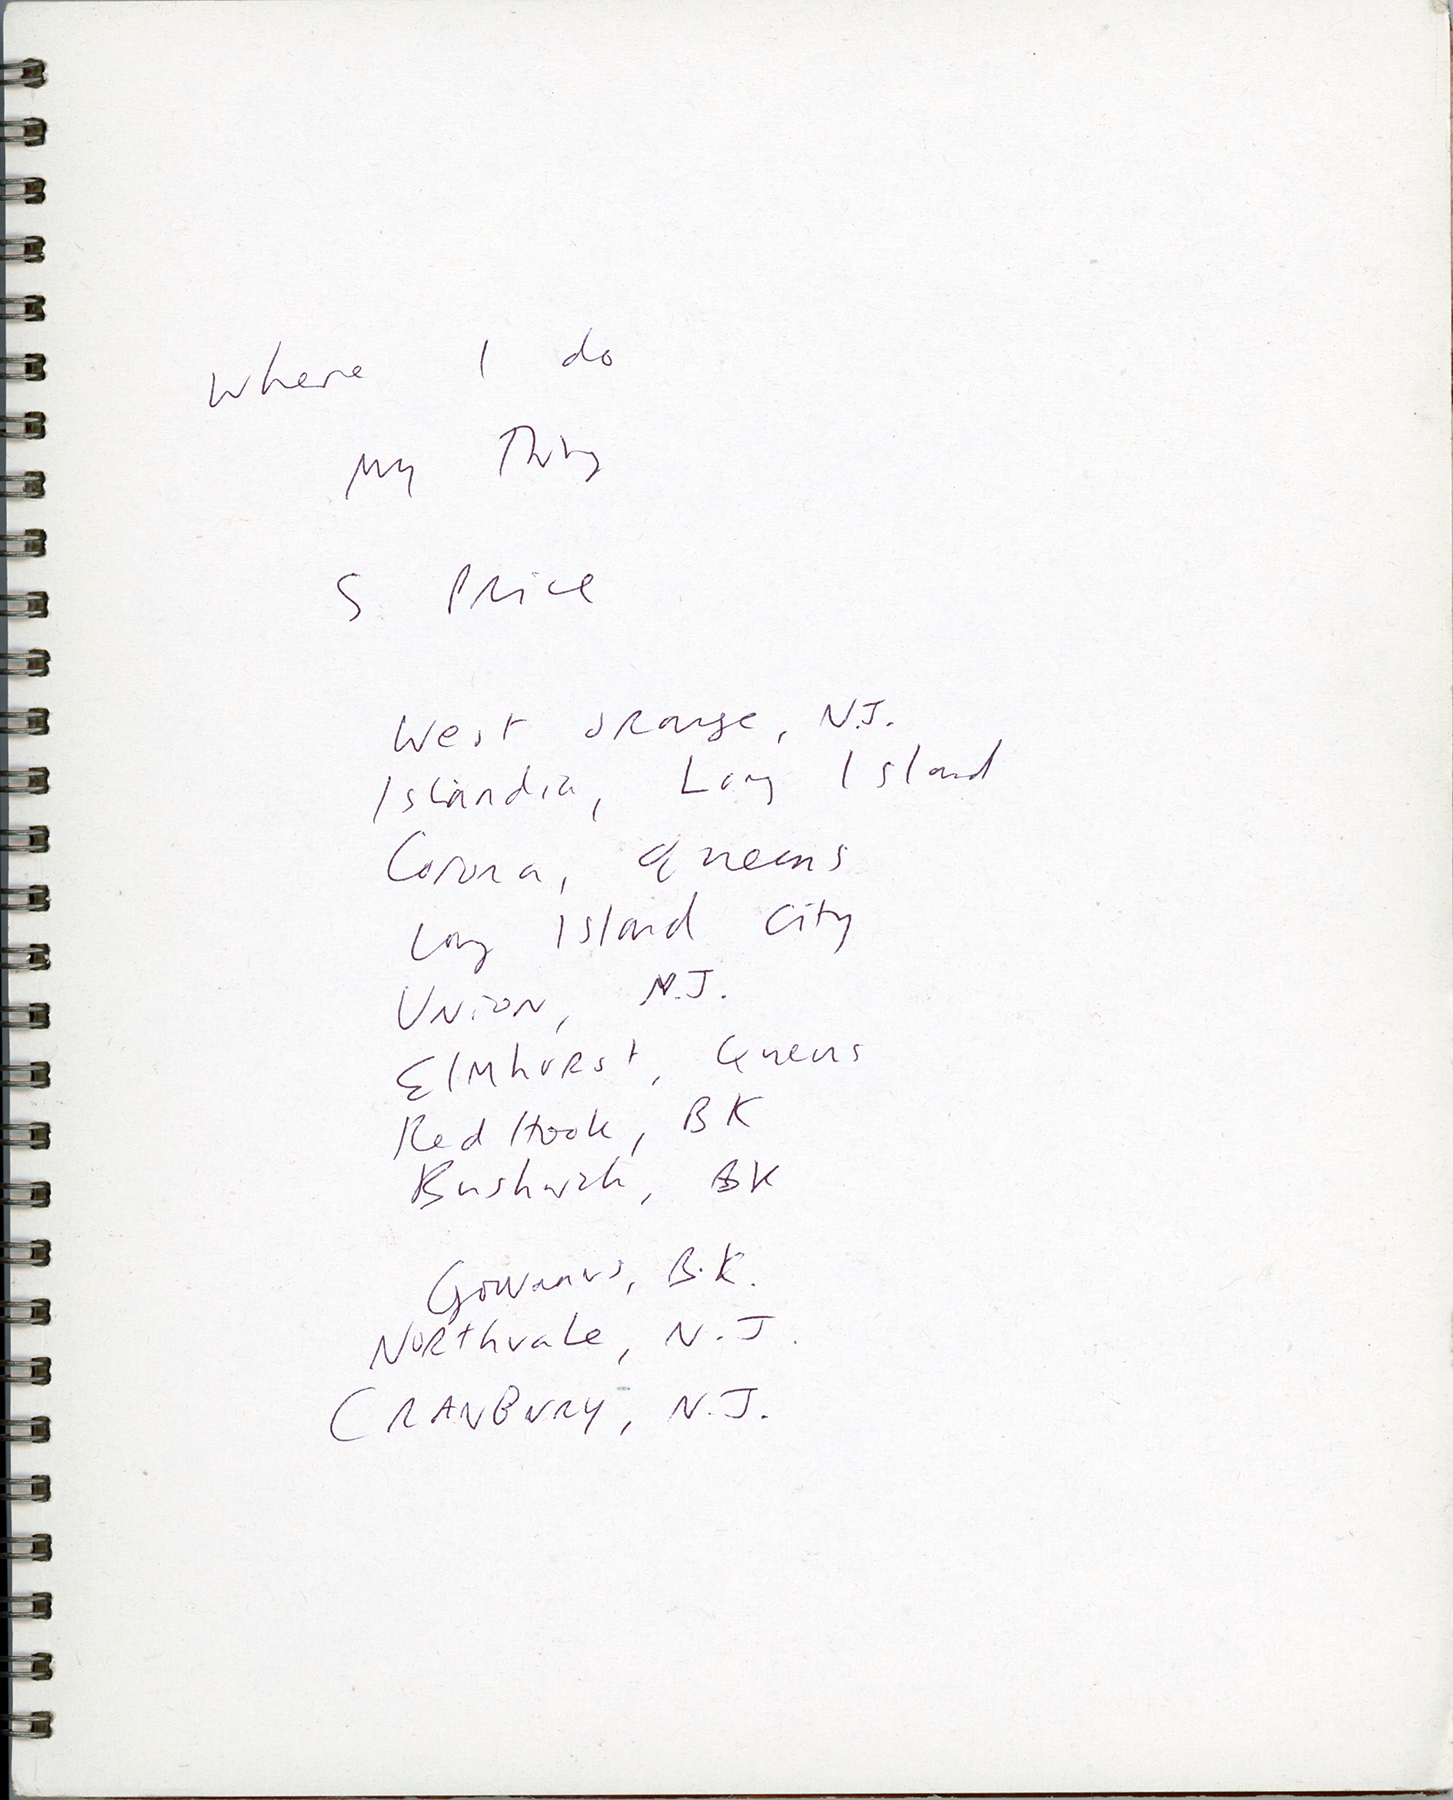 Where I do
My Thing
S Price
West Orange, N.J.
Islandia, Long Island
Corona, Queens
Long Island City
Union, N.J.
Elmhurst, Queens
Red Hook, BK
Bushwick, BK
Gowanus, B.K.
Northvale, N.J.
CRANBURY, N.J.